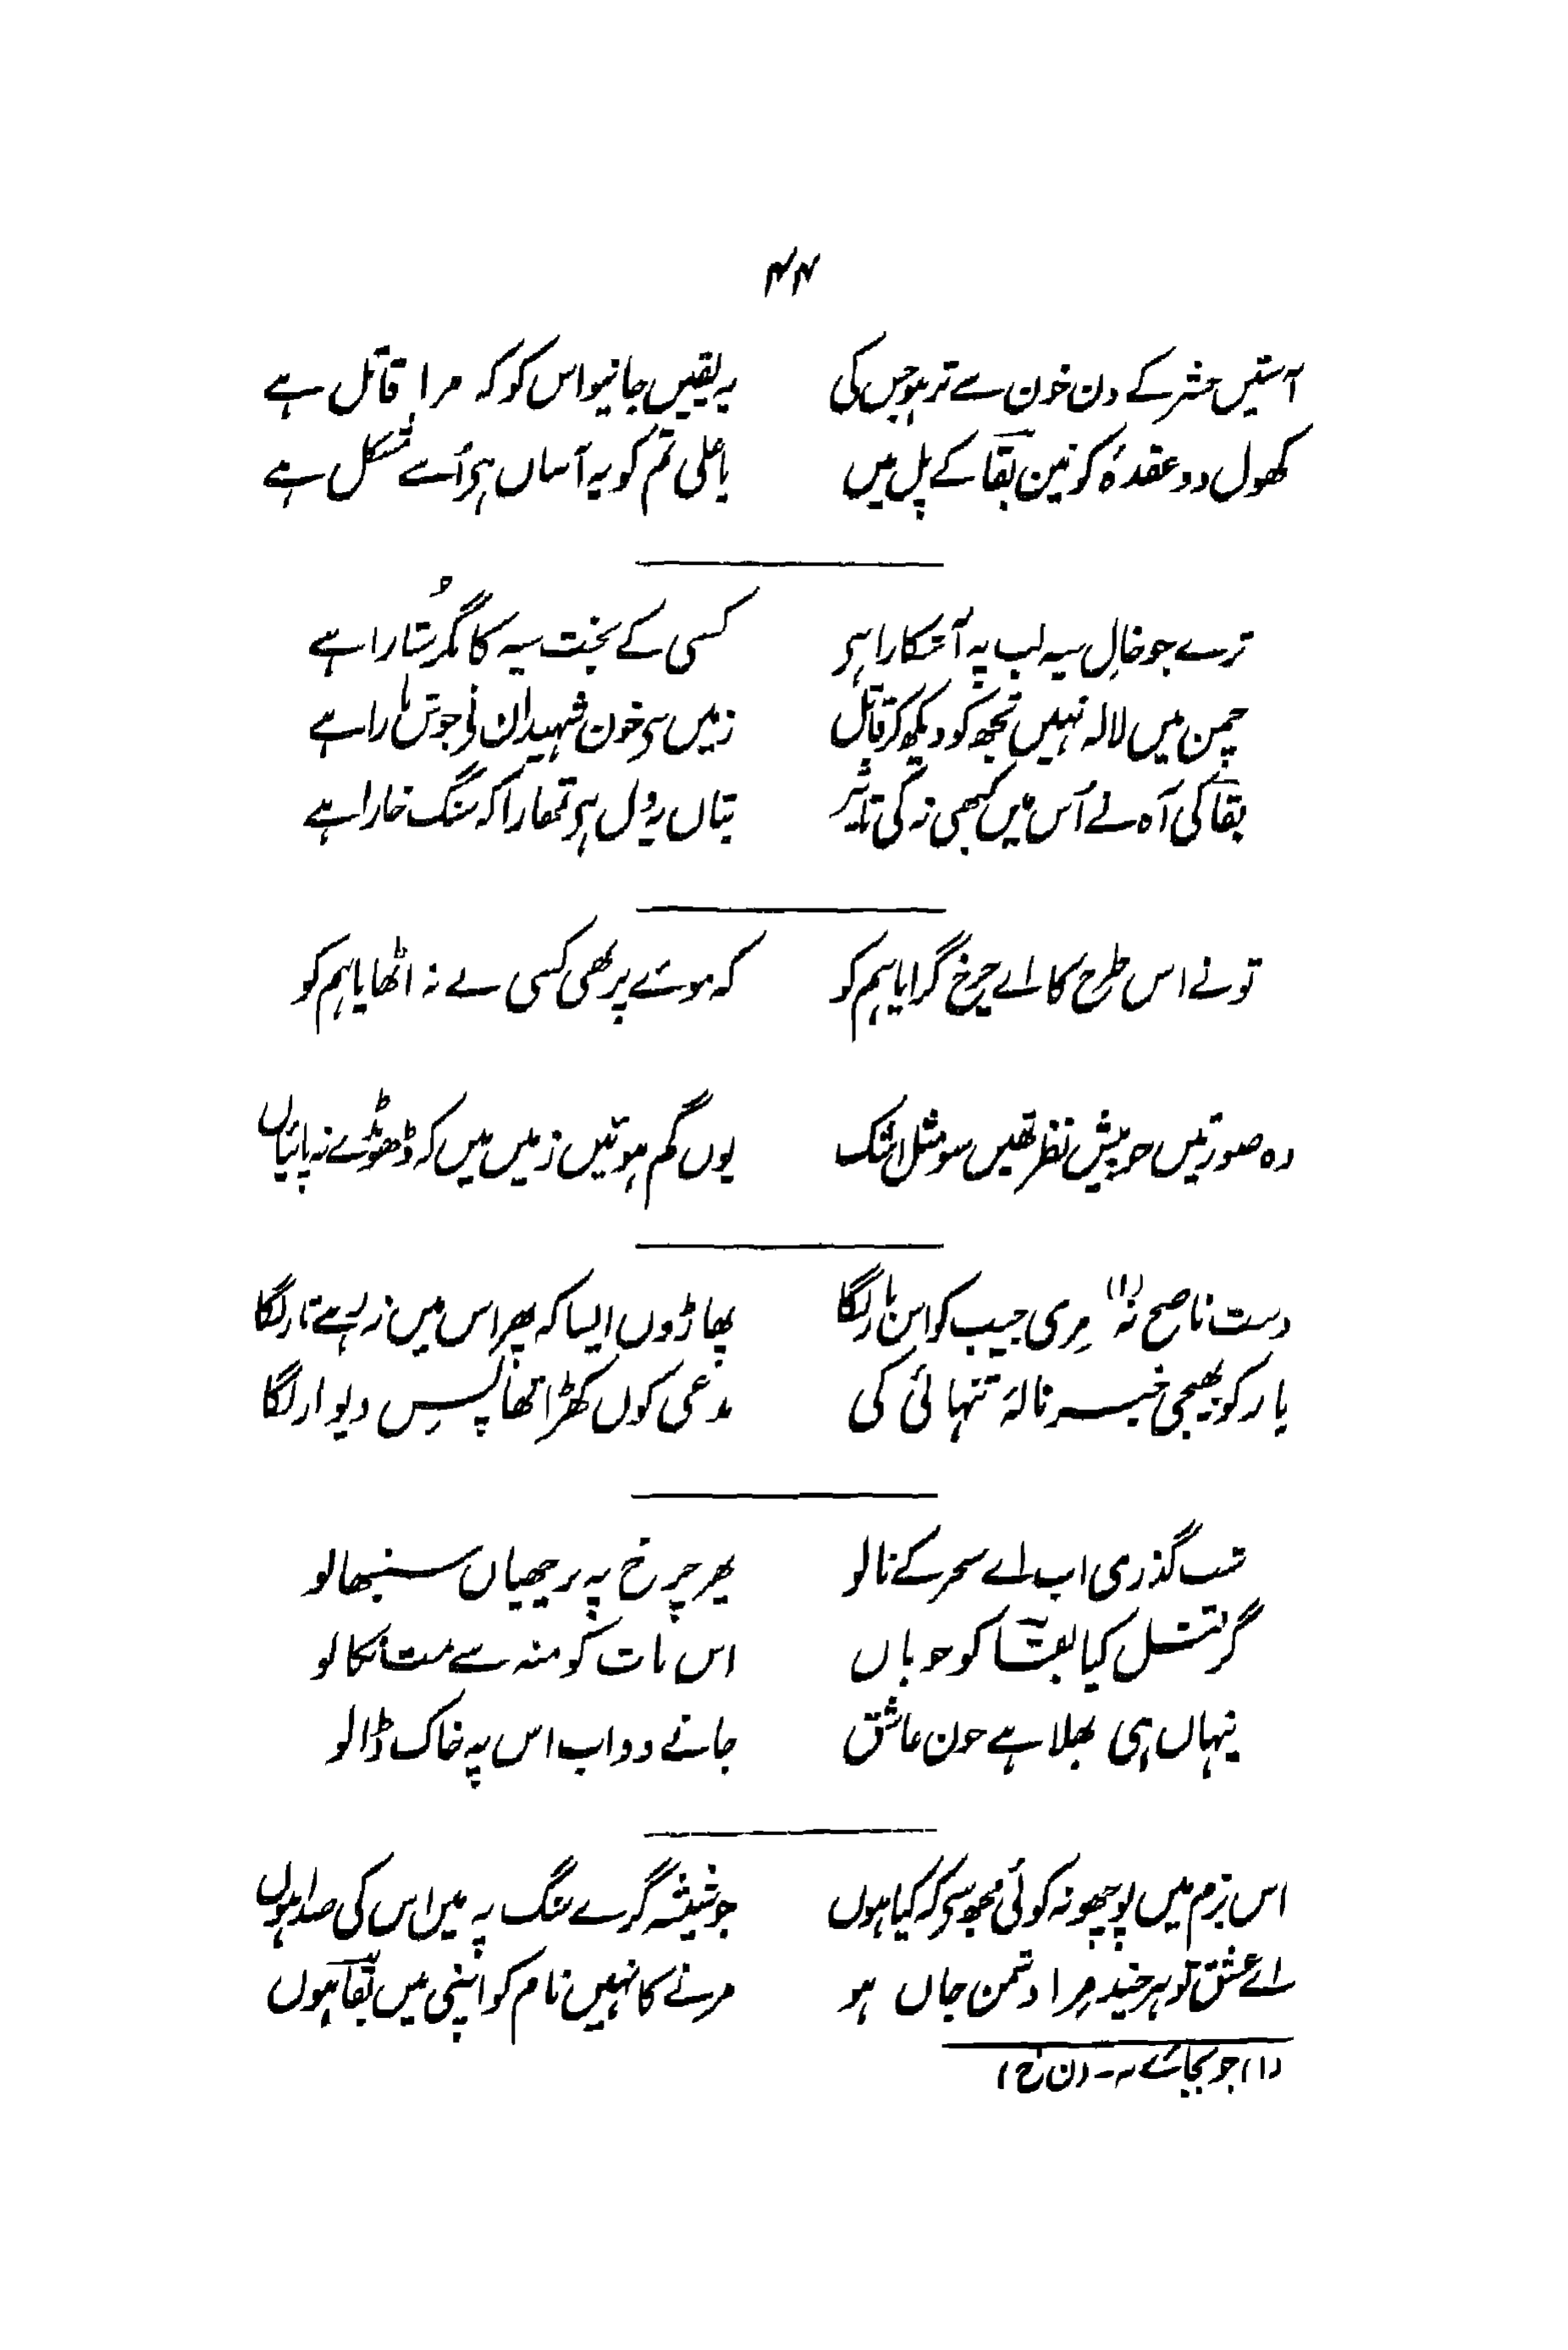 ۴۴
آستیں حشر کے دن خون سے تر ہو جس کی    یہ یقیں جانیو اس کو کہ مرا قاتل ہے
کھول دو عقدۂ کونین بقا کے پل میں    یا علی تم کو یہ آساں ہی اُسے مشکل ہے
ترے جو خالِ سیہ لب پہ آشکارا ہی    کسی کے بخت سیہ کا مگر ستارا ہے
چمن میں لالہ نہیں تجھ کو دیکھ کر قاتل    زمیں سی خون شہیداں نی جوش مارا ہے
بقا کی آہ نے اُس میں کبھی نہ کی تاثیر    بتاں یہ دل ہی تمھارا کہ سنگ خارا ہے
تو نے اس طرح کا اے چرخ گرایا ہم کو    کہ موے پر بھی کسی نے نہ اٹھایا ہم کو
وہ صورتیں جو پیش نظر تھیں سو مثل اشک    یوں گم ہوئیں زمیں میں کہ ڈھونڈے نہ پائیاں
دست ناصح نہ (۱) مِری جیب کو اس بار لگا    پھاڑوں ایسا کہ پھر اس میں نہ رہے تار لگا
یار کو بھیجی خبر نالۂ تنہائی کی    مدعی کوں کھڑا تھا پسِ دیوار لگا
شب گذری اب اے سحر کے نالو    پھر چرخ پہ برچھیاں سنبھالو
گر قتل کیا بقا کو خوباں    اس بات کو منہ سے مت نکالو
پنہاں ہی بھلا ہے خون عاشق    جانے دو اب اس پہ خاک ڈالو
اس بزم میں پوچھو نہ کوئی مجھ سی کہ کیا ہوں    جو شیشہ گرے سنگ پہ میں اس کی صدا ہوں
اے عشق تو ہر چند مِرا دشمن جاں ہو    مرنے کا نہیں نام کو اپنی میں بقا ہوں
(۱) جو بجائے نہ ۔ (ن خ)